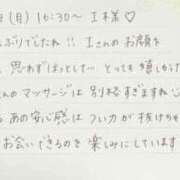 (月) 16:30~ I様♡
ぶりでしたね!! Iさんのお顔を
、思わずほっとして… とっても嬉しか
んのマッサージは 別格すぎますね
あの安心感は つい力が抜けちゃ
お会いできるのを 楽しみにしています